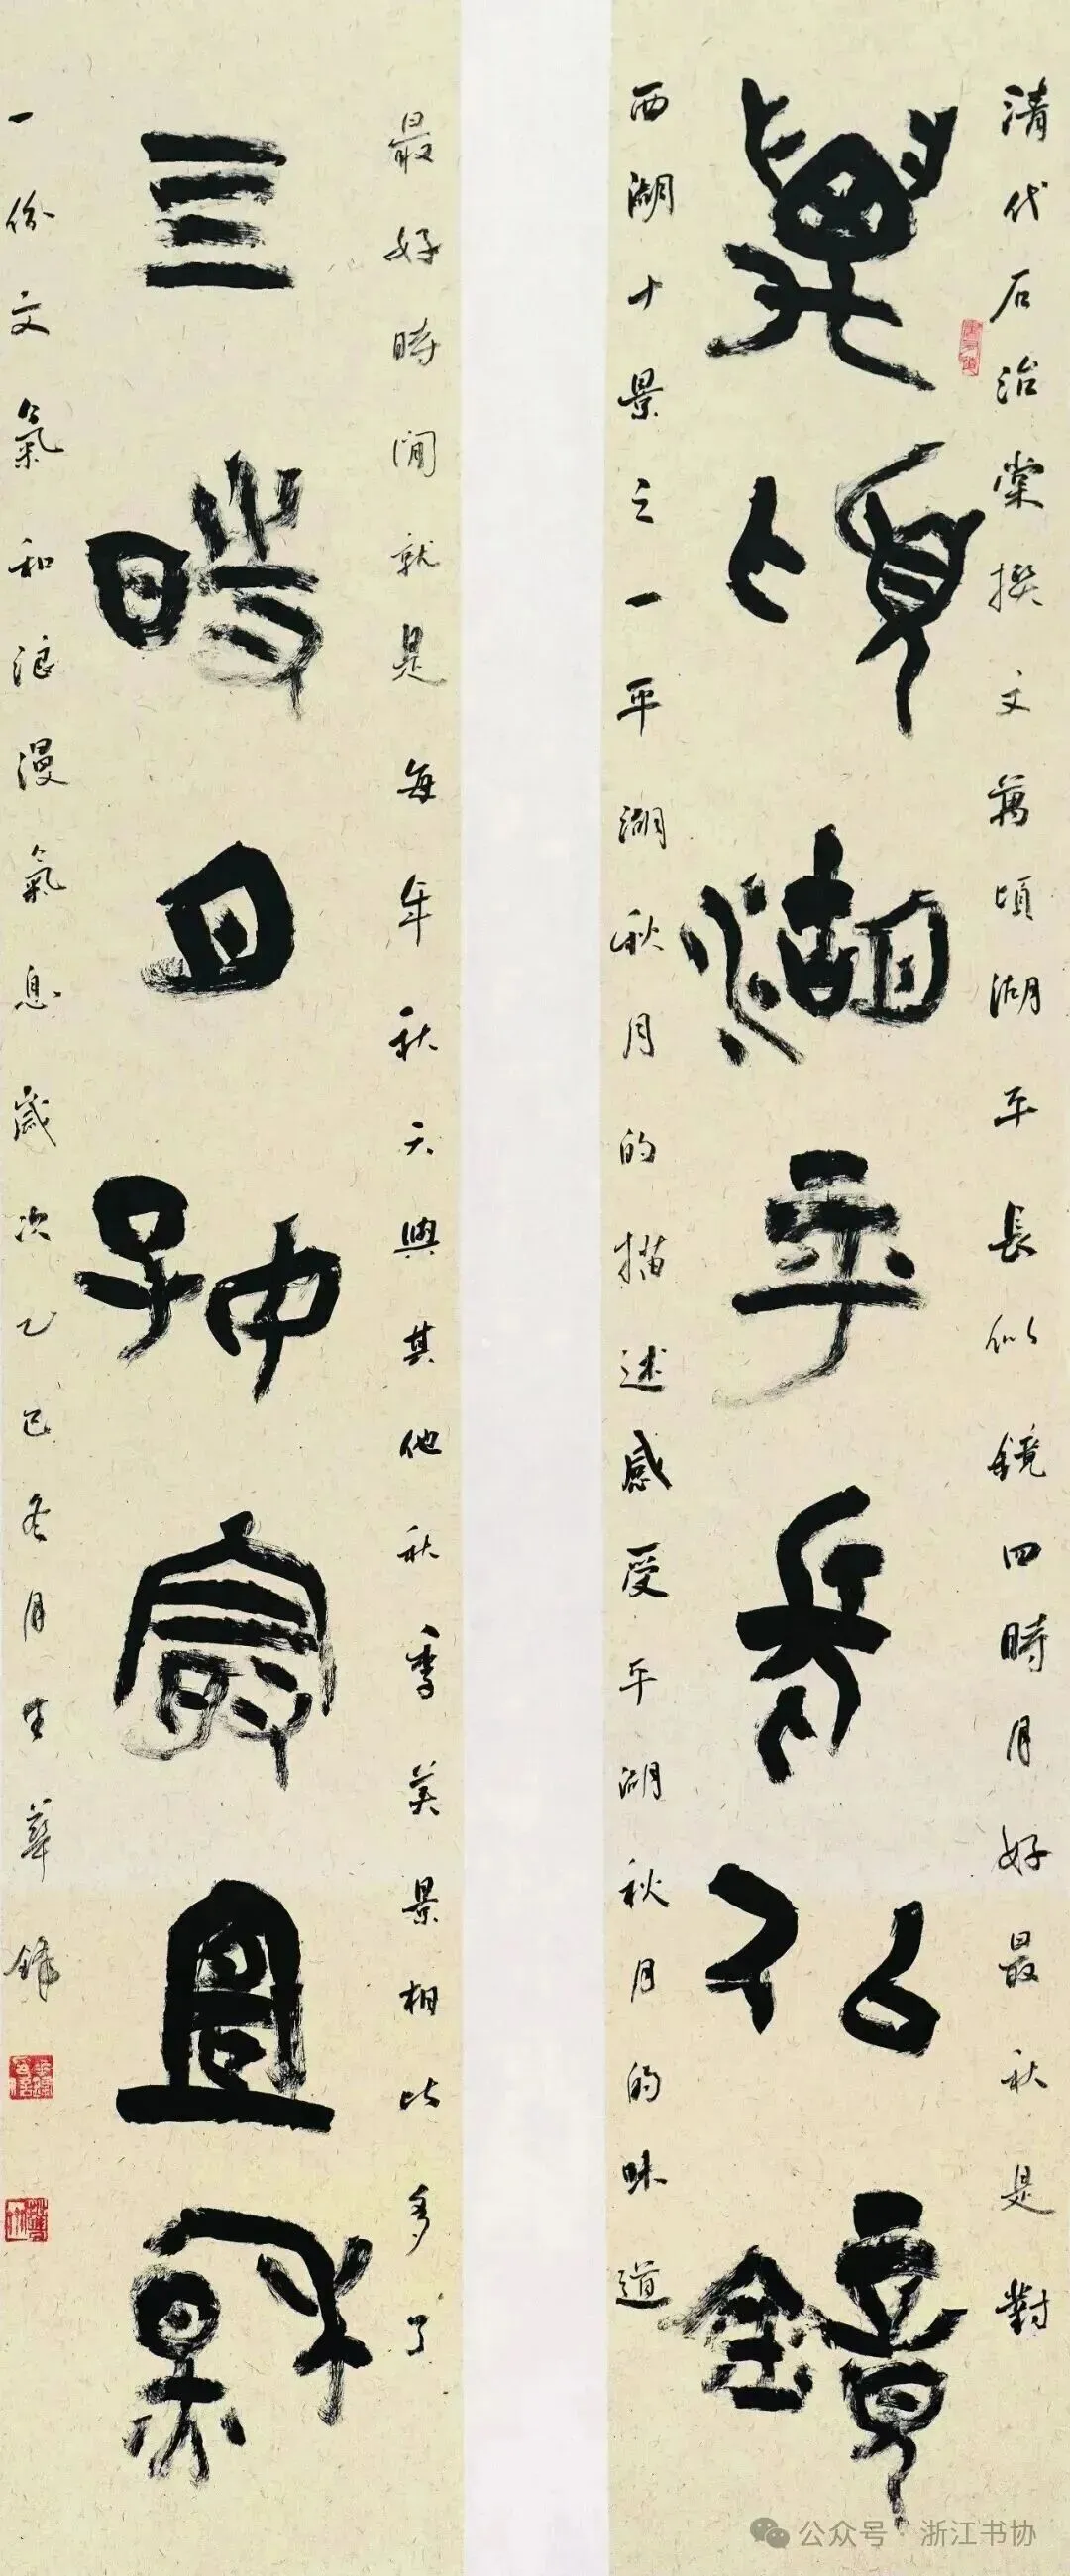 清代石治棠撰文萬頃湖平長似鏡四時月好最秋是對
萬頃湖平長似鏡
西湖十景之一平湖秋月的描述感受平湖秋月的味道
最好時間就是每年秋天與其他秋季美景相比多了
三時月好最宜秋
一份文氣和浪漫氣息歲次乙巳冬月生華鋒
公众号·浙江书协